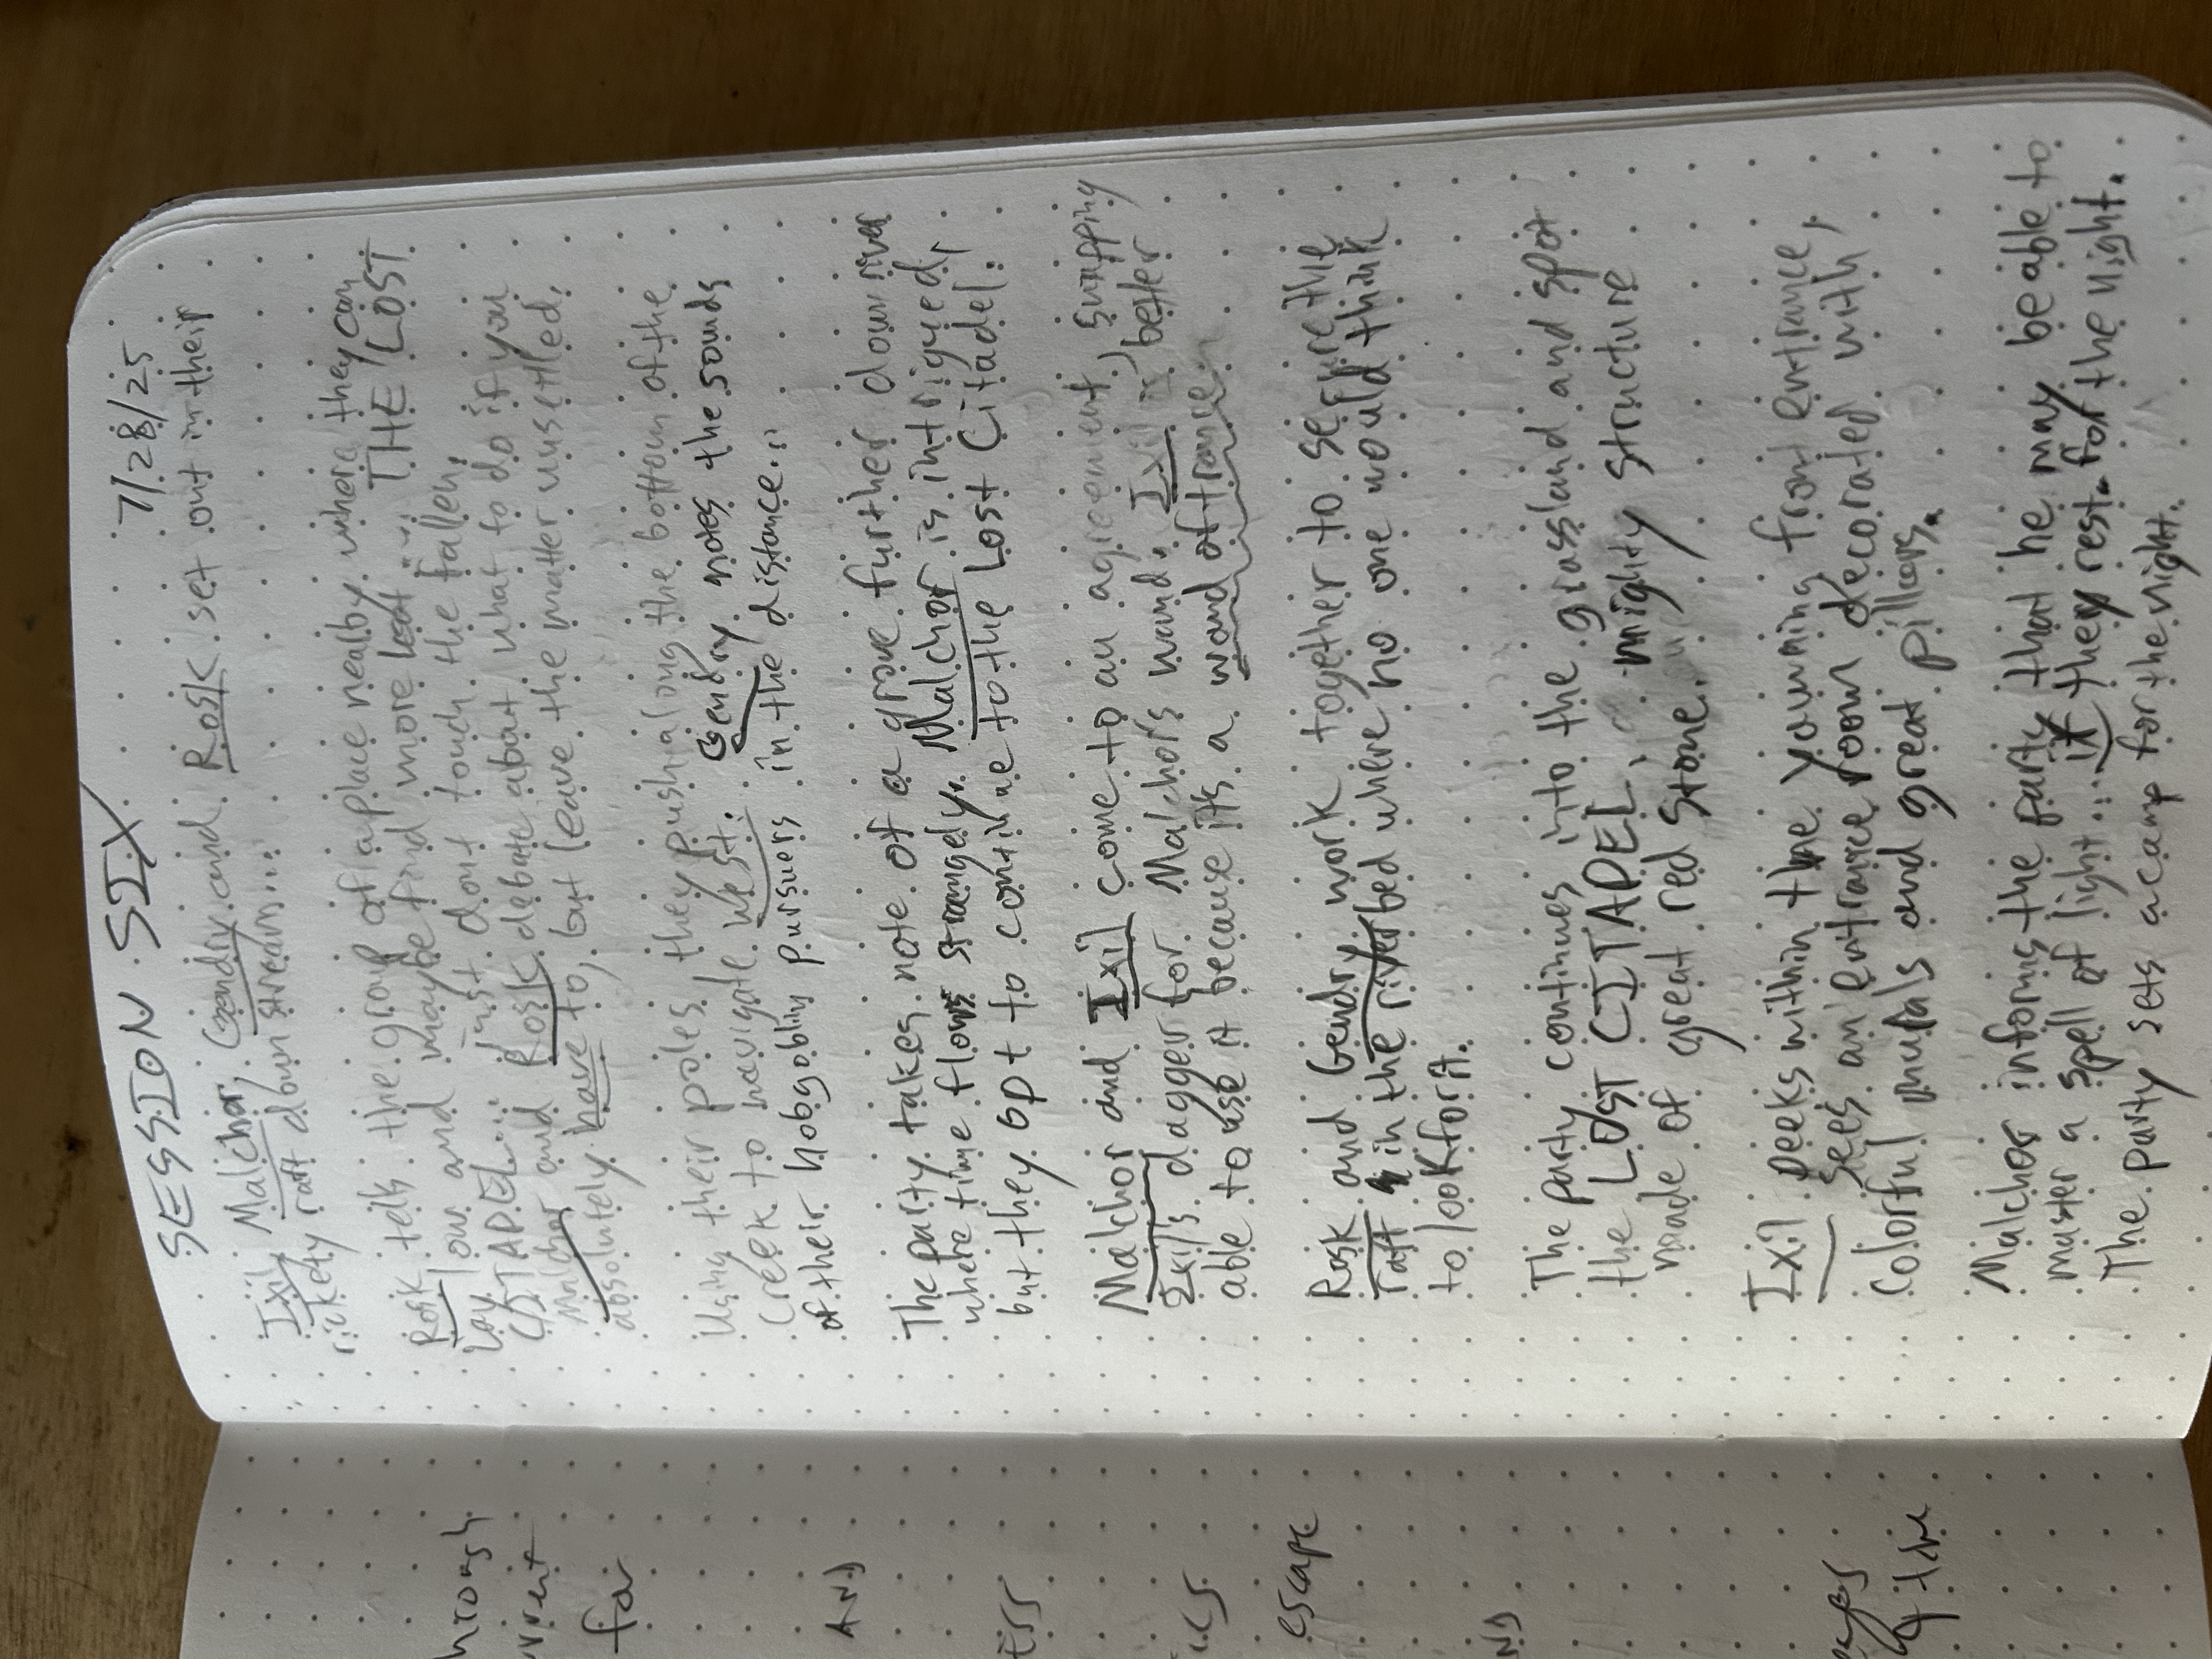 hrough
rrent
for
AND
ess
ics
escape
ND
eyes
of the
SESSION SIX 7/28/25
Ixil, Malchor, Gendry and Rosk set out in their
rickety raft downstream...
Rosk tells the group of a place nearby where they can
lay low and maybe find more loot... THE LOST
CITADEL... just don't touch the fallen.
Malchor and Rosk debate about what to do if you
absolutely have to, but leave the matter unsettled.
Using their poles they push along the bottom of the
creek to navigate west. Gendry notes the sounds
of their hobgoblin pursuers in the distance...
The party takes note of a grove further down river
where time flows strangely. Malchor is intrigued,
but they opt to continue to the Lost Citadel.
Malchor and Ixil come to an agreement, swapping
Ixil's dagger for Malchor's wand. Ixil is better
able to use it because it's a wand of trance.
Rosk and Gendry work together to secure the
raft in the river bed where no one would think
to look for it.
The party continues into the grassland and spot
the LOST CITADEL, mighty structure
made of great red stone.
Ixil peeks within the yawning front entrance,
sees an entrance room decorated with,
colorful murals and great pillars.
Malchor informs the party that he may be able to
master a spell of light... if they rest for the night.
The party sets a camp for the night.